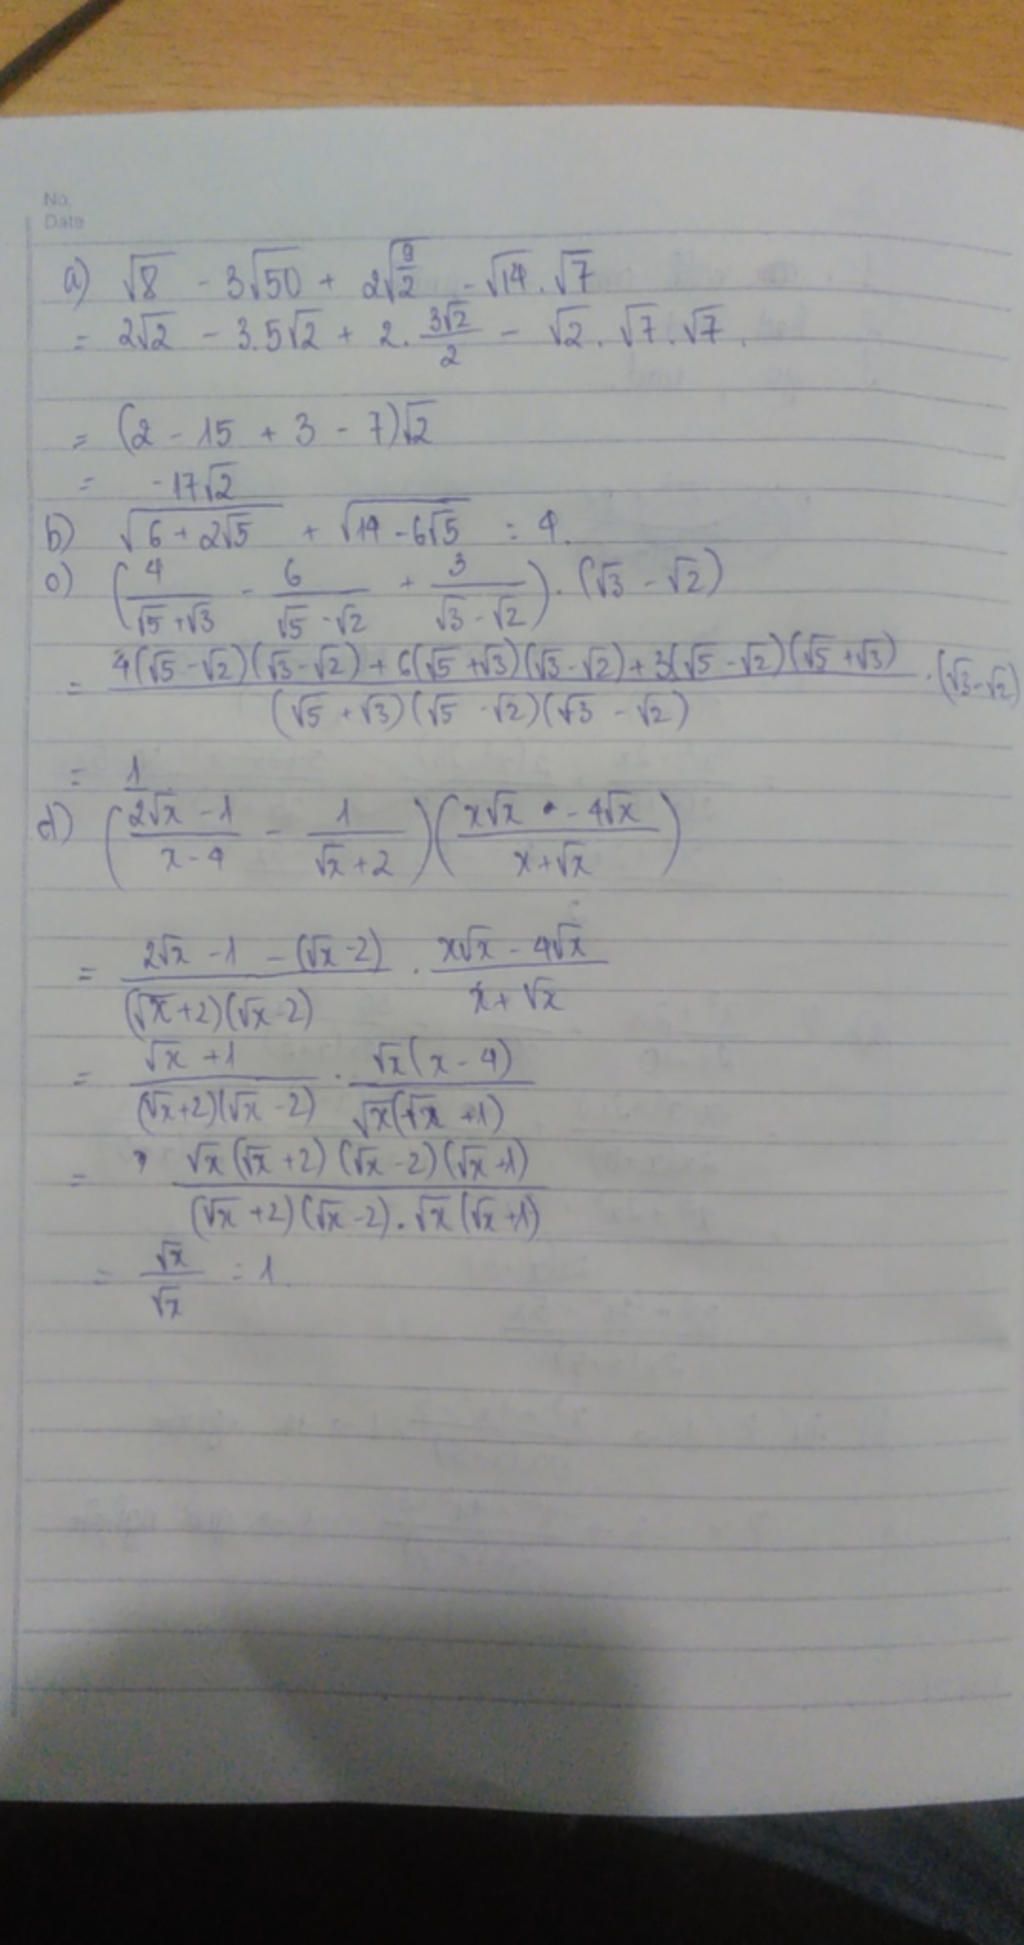 No.
Date
a) √8 - 3√50 + 2√(9/2) - √14 . √7
= 2√2 - 3.5√2 + 2. (3√2)/2 - √2 . √7 . √7.
= (2 - 15 + 3 - 7)√2
= -17√2
b) √(6 + 2√5) + √(14 - 6√5) = 4.
c) (4/(√5 + √3) - 6/(√5 - √2) + 3/(√3 - √2)) . (√3 - √2)
= (4(√5 - √2)(√3 - √2) + 6(√5 + √3)(√3 - √2) + 3(√5 - √2)(√5 + √3))/((√5 + √3)(√5 - √2)(√3 - √2)) . (√3 - √2)
= 1
d) ((2√x - 1)/(x - 4) - 1/(√x + 2))((x√x - 4√x)/(x + √x))
= (2√x - 1 - (√x - 2))/((√x + 2)(√x - 2)) . (x√x - 4√x)/(x + √x)
= (√x + 1)/((√x + 2)(√x - 2)) . (√x(x - 4))/(√x(√x + 1))
= (√x(√x + 2)(√x - 2)(√x + 1))/((√x + 2)(√x - 2) . √x(√x + 1))
= √x/√x = 1